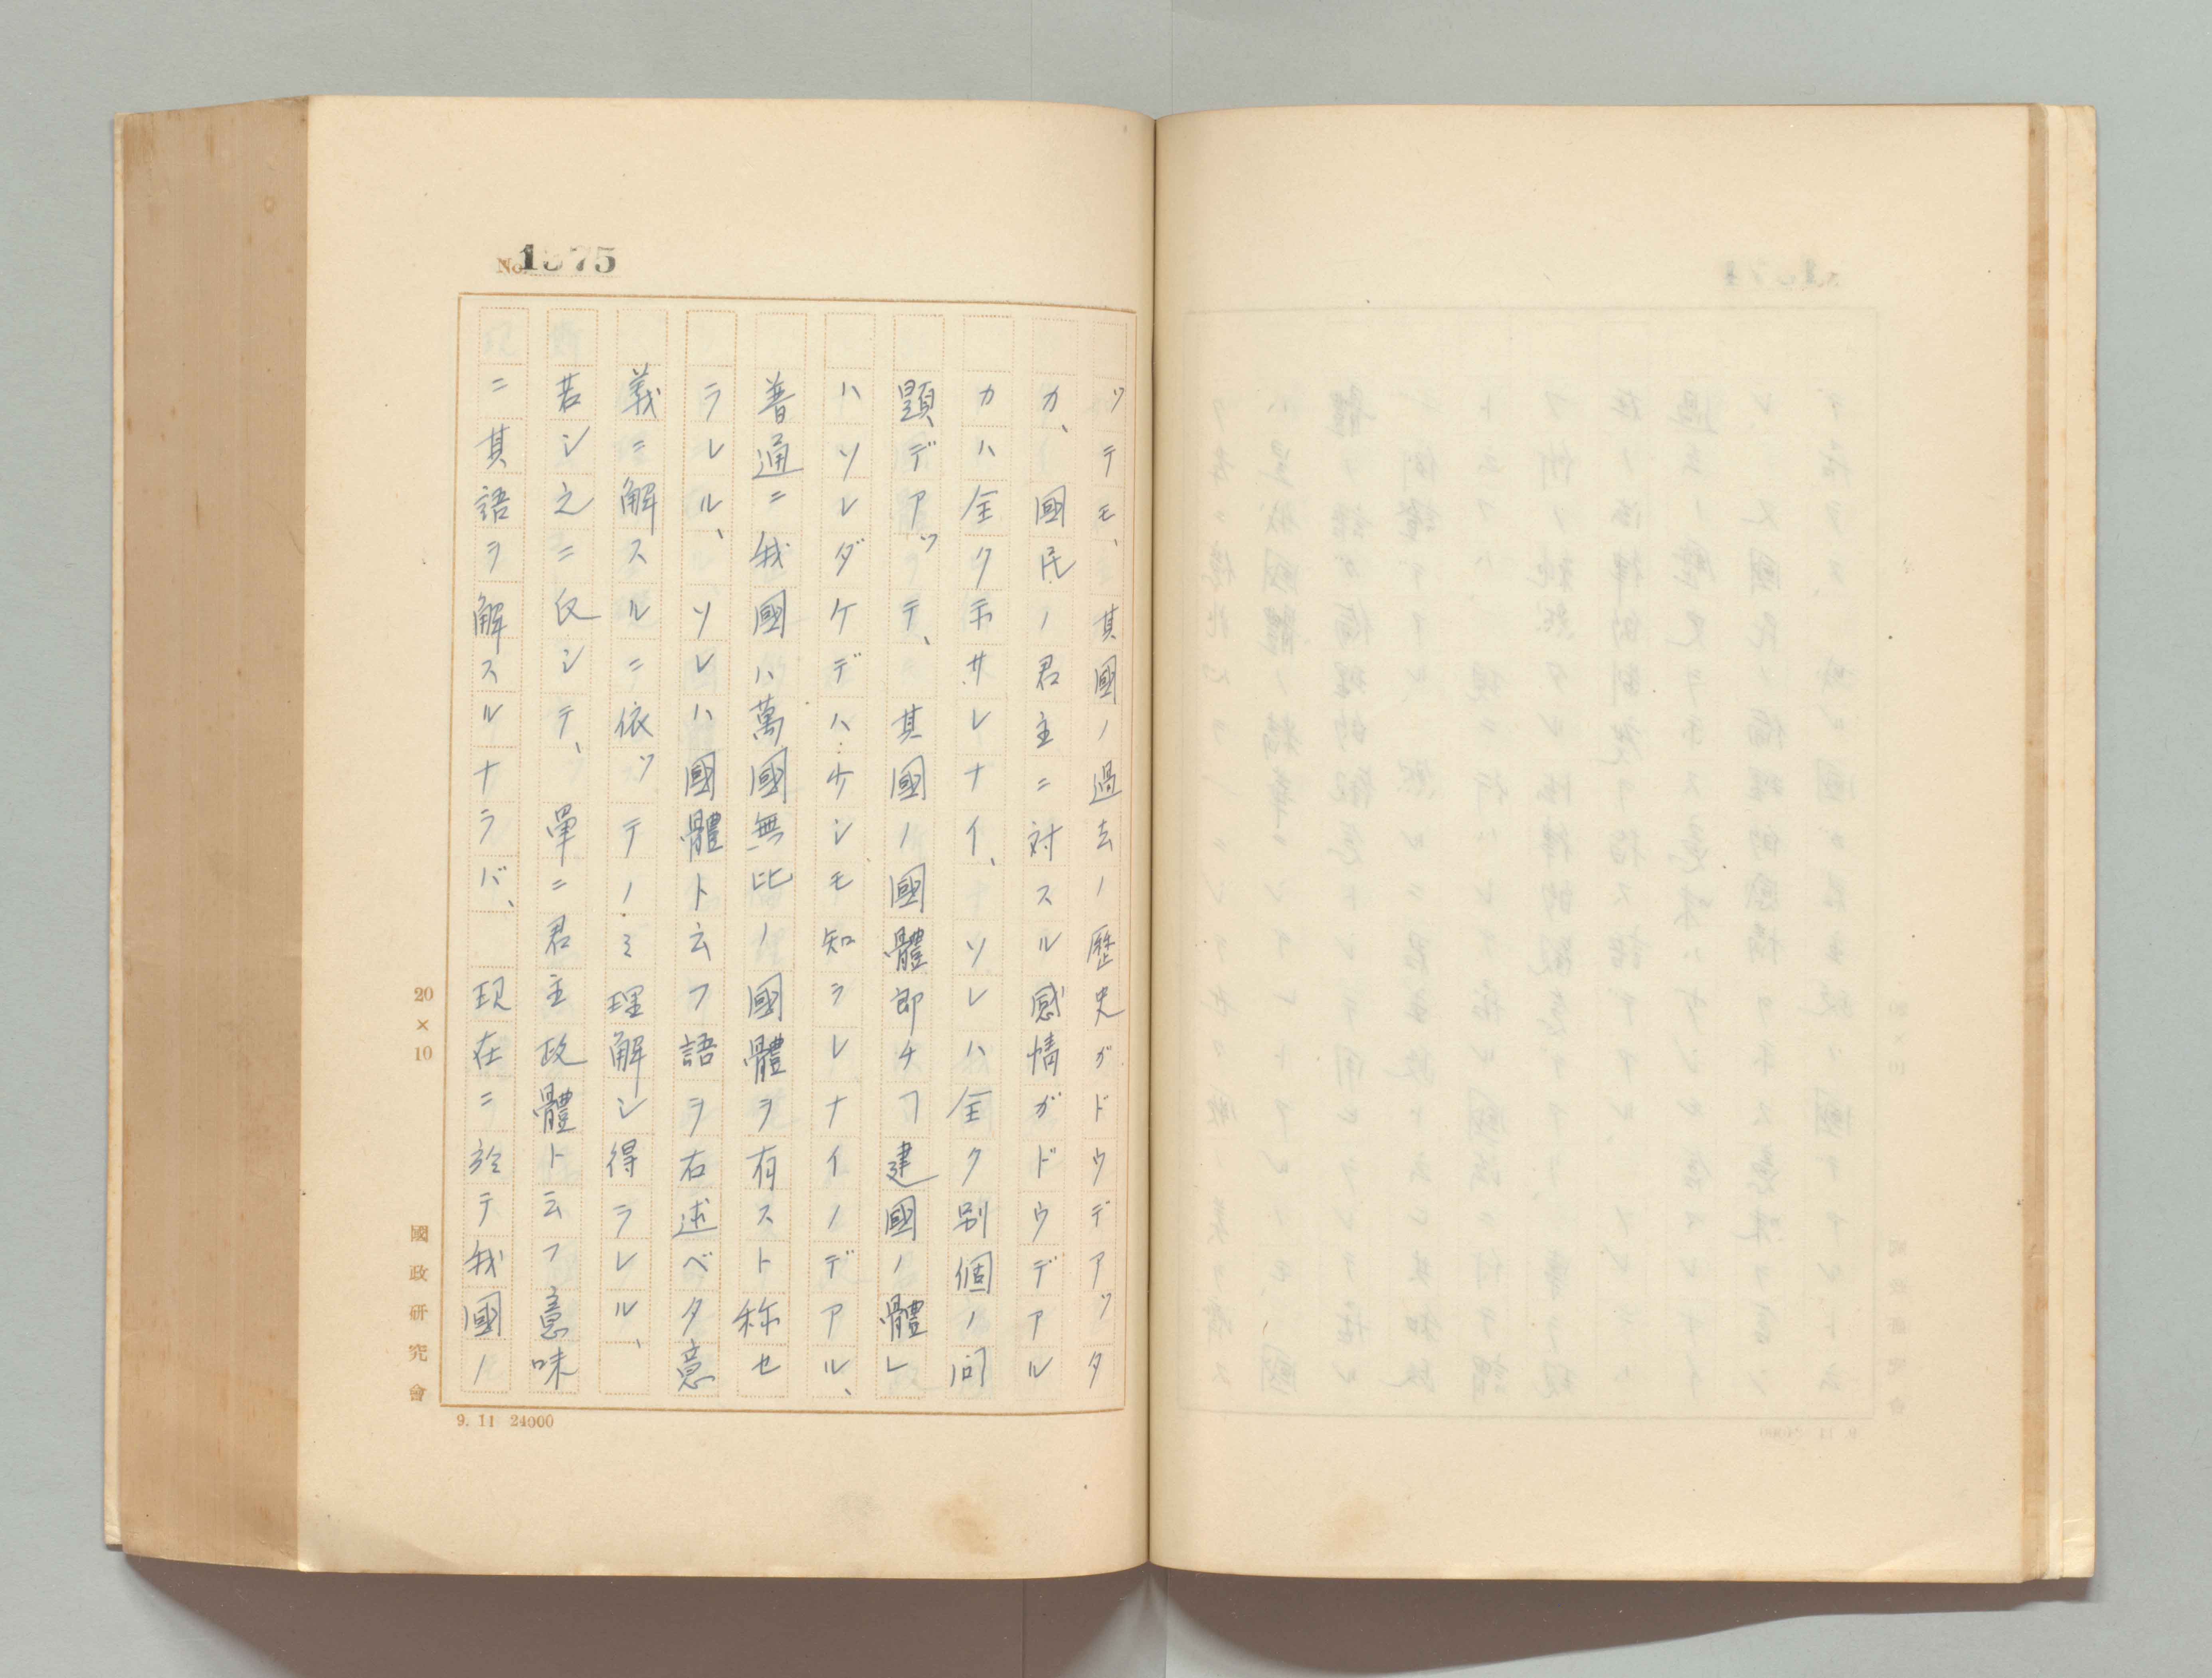 No. 1375
ツテモ、其國ノ過去ノ歴史ガドウデアツタ
カ、國民ノ君主ニ対スル感情ガドウデアル
カハ全ク示サレナイ、ソレハ全ク別個ノ問
題デアツテ、其國ノ國體即チ「建國ノ體」
ハソレダケデハ少シモ知ラレナイノデアル、
普通ニ我國ハ萬國無比ノ國體ヲ有スト称セ
ラレル、ソレハ國體ト云フ語ヲ右述ベタ意
義ニ解スルニ依ツテノミ理解シ得ラレル、
若シ之ニ反シテ、單ニ君主政體ト云フ意味
ニ其語ヲ解スルナラバ、現在ニ於テ我國ノ
20×10
國政研究會
9. 11 24000